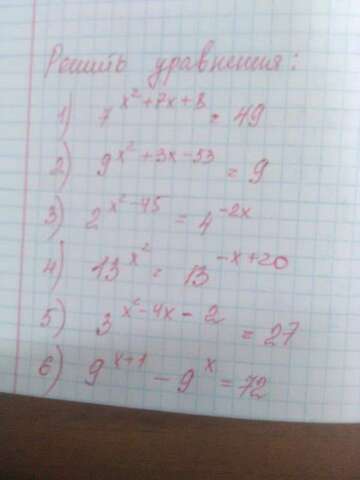 Решить уравнения:
1) 7^{x²+7x+8} = 49
2) 9^{x²+3x-53} = 9
3) 2^{x²-45} = 4^{-2x}
4) 13^{x²} = 13^{-x+20}
5) 3^{x²-4x-2} = 27
6) 9^{x+1} - 9^{x} = 72